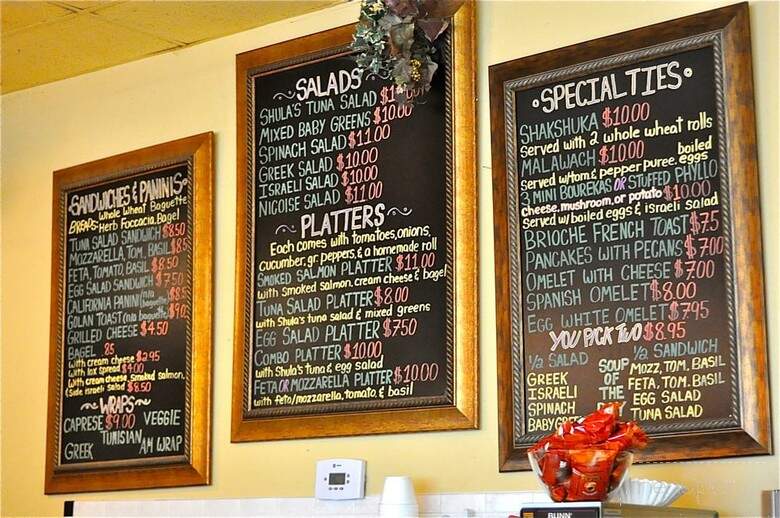 SANDWICHES & PANINIS
Whole Wheat Baguette
BREADS: Herb Foccacia, Bagel
TUNA SALAD SANDWICH $8.50
MOZZARELLA, TOM, BASIL $8.5
FETA, TOMATO, BASIL $8.50
EGG SALAD SANDWICH $7.50
CALIFORNIA PANINI (n/a baguette) $8.5
GOLAN TOAST (n/a baguette) $9.0
GRILLED CHEESE $4.50
BAGEL .85
with cream cheese $2.95
with lox spread $4.00
with cream cheese, smoked salmon,
(side israeli salad $8.50
~WRAPS~
CAPRESE $9.00 VEGGIE
TUNISIAN
GREEK AM WRAP
SALADS
SHULA'S TUNA SALAD
MIXED BABY GREENS $10.00
SPINACH SALAD $11.00
GREEK SALAD $10.00
ISRAELI SALAD $10.00
NICOISE SALAD $11.00
~PLATTERS~
Each comes with tomatoes, onions,
cucumber, gr. peppers, & a homemade roll
SMOKED SALMON PLATTER $11.00
with smoked salmon, cream cheese & bagel
TUNA SALAD PLATTER $8.00
with Shula's tuna salad & mixed greens
EGG SALAD PLATTER $7.50
COMBO PLATTER $10.00
with Shula's tuna & egg salad
FETA OR MOZZARELLA PLATTER $10.00
with feta/mozzarella, tomato, & basil
•SPECIALTIES•
SHAKSHUKA $10.00
Served with 2 whole wheat rolls
MALAWACH $10.00 boiled
Served w/tom & pepper puree, eggs
3 MINI BOUREKAS OR STUFFED PHYLLO
cheese, mushroom, or potato $10.00
Served w/ boiled eggs & israeli salad
BRIOCHE FRENCH TOAST $7.5
PANCAKES WITH PECANS $7.00
OMELET WITH CHEESE $7.00
SPANISH OMELET $8.00
EGG WHITE OMELET $7.95
YOU PICK TWO $8.95
1/2 SALAD SOUP OF THE DAY 1/2 SANDWICH
GREEK MOZZ, TOM, BASIL
ISRAELI FETA, TOM, BASIL
SPINACH EGG SALAD
BABY TUNA SALAD
BUNN